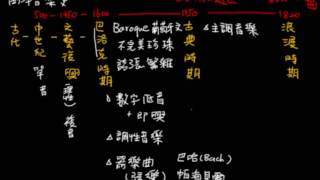 西洋音樂史
500-1450-1600
1750
1820
古代
中世紀
單音
文藝復興
複音
巴洛克時期
Baroque 葡萄牙文
不完美珍珠
誇張繁雜
△數字低音
+即興
△調性音樂
△器樂曲
(弦樂)
巴哈(Bach)
古典時期
△主調音樂
浪漫時期